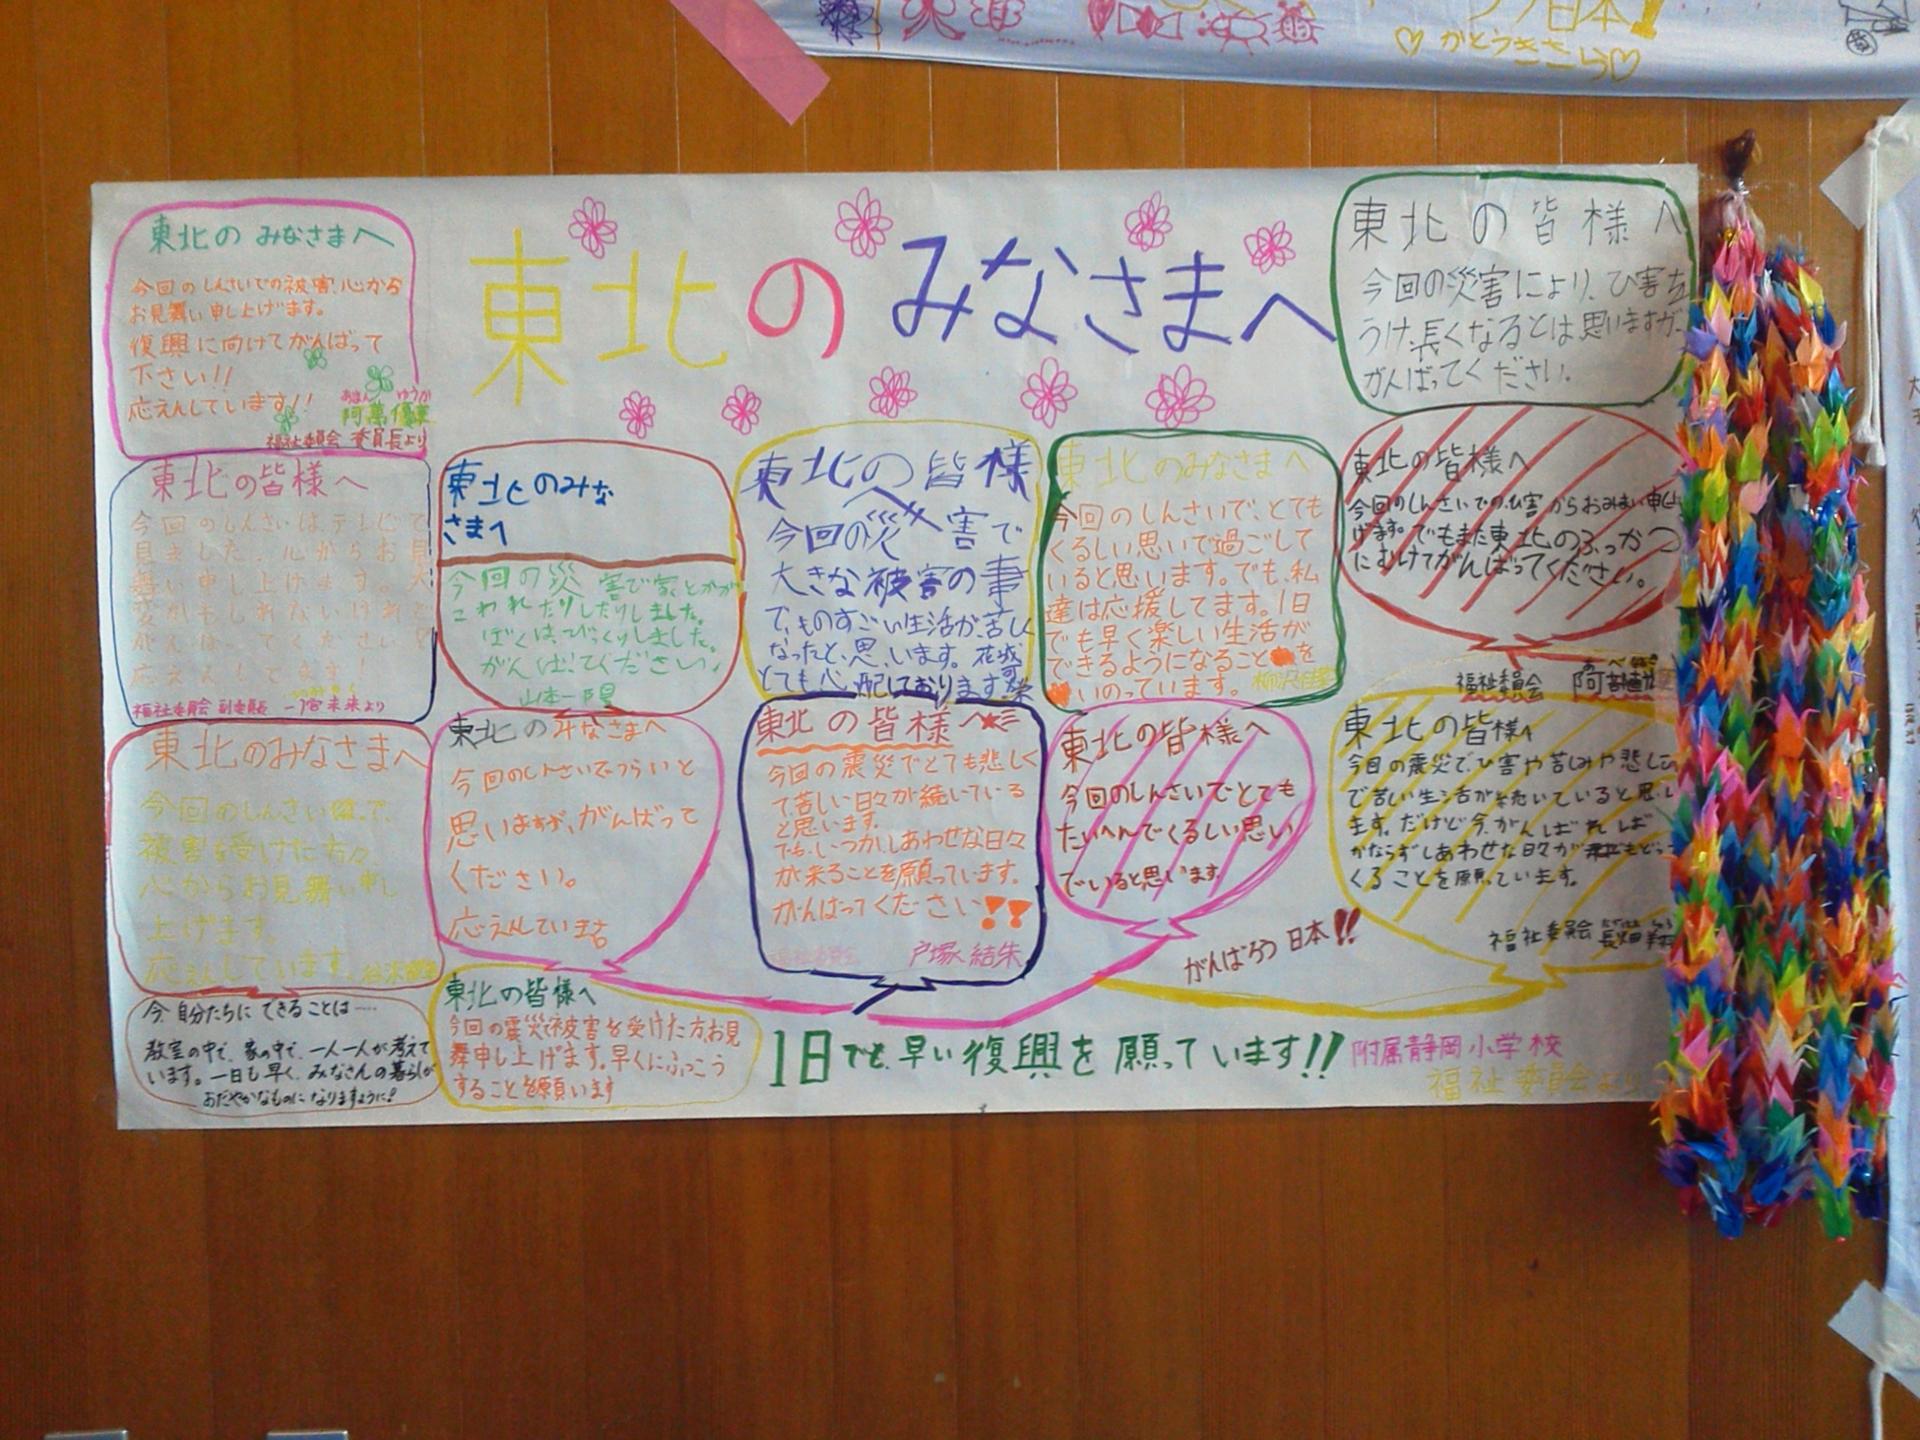 日本!
♡がとうきさら♡
東北のみなさまへ
東北のみなさまへ
今回のしんさいでの被害心から
お見舞い申し上げます。
復興に向けてがんばって
下さい!!
応えんしています!!
福祉委員会 委員長より
東北の皆様へ
今回の災害により、ひ害を
うけ、長くなるとは思いますが、
がんばってください。
東北の皆様へ
今回のしんさいは、テレビで
見ました。心からお見
舞い申し上げます。大
変かもしれないけれど
がんばってください!
応えんしてます!
福祉委員会 副委員長 一ノ宮未来より
東北のみな
さまへ
今回の災害で家とかが
こわれたりしたりしました。
ぼくは、びっくりしました。
がんばってください。
東北の皆様へ
今回の災害で
大きな被害の事
で、ものすごい生活が、苦しく
なったと、思います。
とても心配しております
東北のみなさまへ
今回のしんさいで、とても
くるしい思いで過ごして
いると思います。でも、私
達は応援してます。1日
でも早く楽しい生活が
できるようになることを
いのっています。
東北の皆様へ
今回のしんさいでのひ害からおみまい申し上
げます。でもまた東北のふっかつ
にむけてがんばってください。
福祉委員会
東北のみなさまへ
今回のしんさい
被害を受けた方々、
心からお見舞い申し
上げます。
応えんしています。
東北のみなさまへ
今回のしんさいでつらいと
思いますが、がんばって
ください。
応えんしています
東北の皆様へ
今回の震災でとても悲しく
て苦しい日々が続いている
と思います。
でも、いつかしあわせな日々
が来ることを願っています。
がんばってください!!
福祉委員会 戸塚結朱
東北の皆様へ
今回のしんさいでとても
たいへんでくるしい思い
でいると思います。
東北の皆様へ
今回の震災で、ひ害や苦しみや悲しみ
で苦しい生活が続いていると思い
ます。だけど今、がんばれば
かならずしあわせな日々がもどって
くることを願っています。
福祉委員会
がんばろう日本!!
今、自分たちにできることは……
教室の中で、家の中で、一人一人が考えて
います。一日も早く、みなさんの暮らしが
おだやかなものになりますように!
東北の皆様へ
今回の震災で被害を受けた方お見
舞申し上げます。早くにふっこう
することを願います
1日でも早い復興を願っています!!
附属静岡小学校
福祉委員会より